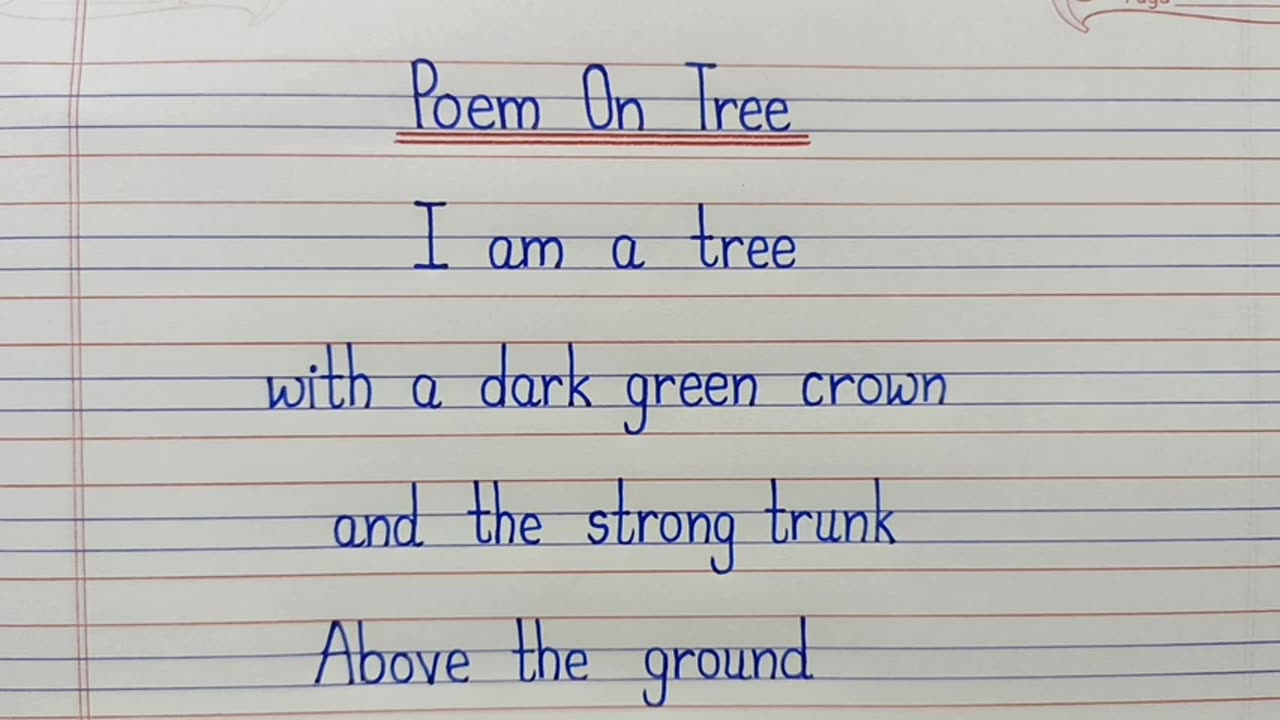 Poem On Tree
I am a tree
with a dark green crown
and the strong trunk
Above the ground